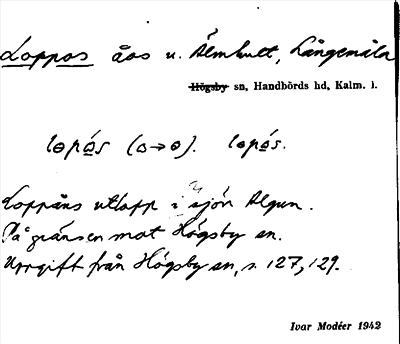 Loppos åos u. Älmhult, Långemåla
Högsby sn, Handbörds hd, Kalm. l.
lɵpǻs (o→ɵ). lɵpǻs.
Loppåns utlopp i sjön Algun.
På gränsen mot Högsby sn.
Uppgift från Högsby sn, s. 127, 129.
Ivar Modéer 1942